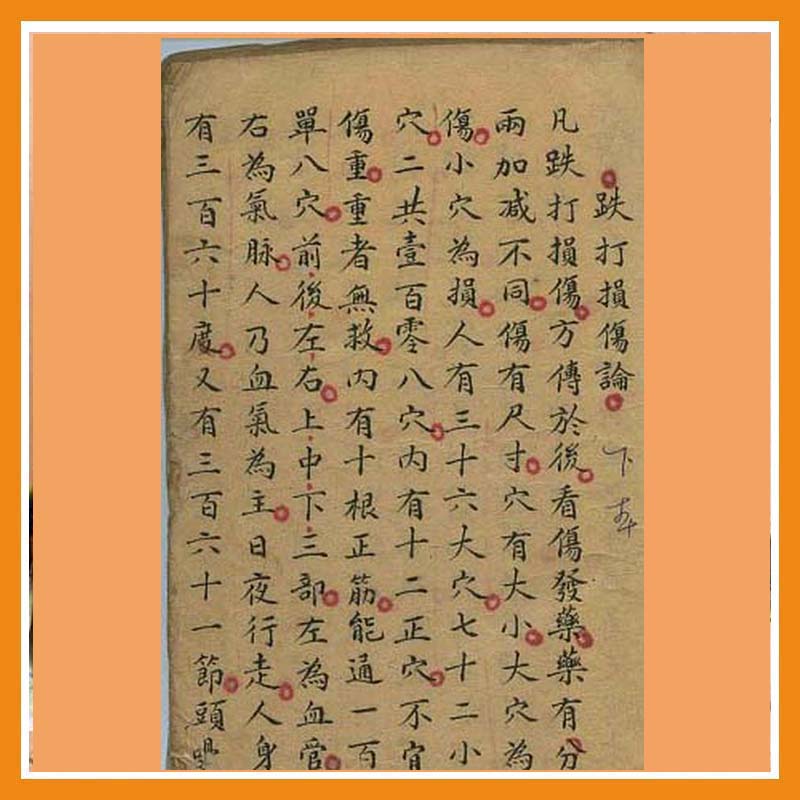 跌打損傷論
凡跌打損傷方傳於後看傷發藥藥有分
兩加減不同傷有尺寸穴有大小大穴為
傷小穴為損人有三十六大穴七十二小
穴二共壹百零八穴內有十二正穴不宜
傷重重者無救內有十根正筋能通一百
單八穴前後左右上中下三部左為血管
右為氣脉人乃血氣為主日夜行走人身
有三百六十度又有三百六十一節頭